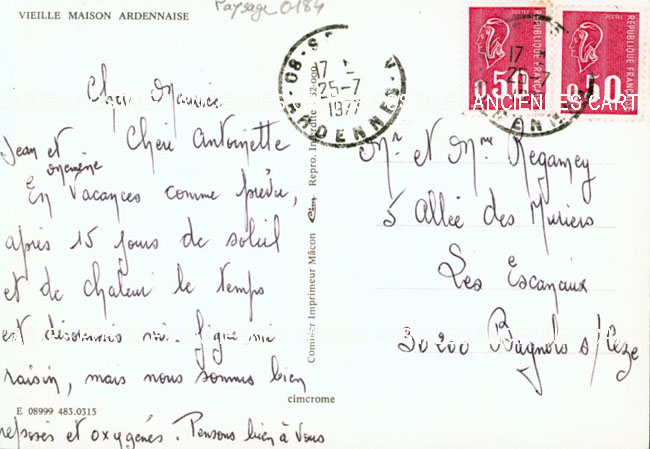 VIEILLE MAISON ARDENNAISE
Paysage 0184
Cher Maurice
Chère Antoinette
Jean et
mémère
En Vacances comme prévu,
après 15 jours de soleil
et de chaleur le temps
est désormais mi-figue mi
raisin, mais nous sommes bien
reposés et oxygénés. Pensons bien à Vous
E 08999 483.0315
cimcrome
Combier Imprimeur Mâcon Cim Repro. Interdite
17
25-7
1977
ARDENNES
08-S
0.50
REPUBLIQUE FRANÇAISE
REPUBLIQUE FRANÇAISE
Mr et Mme Regamey
5 Allée des Muriers
Les Escanaux
30200 Bagnols s/Ceze
CARTES POSTALES ANCIENNES CARTES
ANCIENNES CARTES POSTALES ANCIENNES CARTES